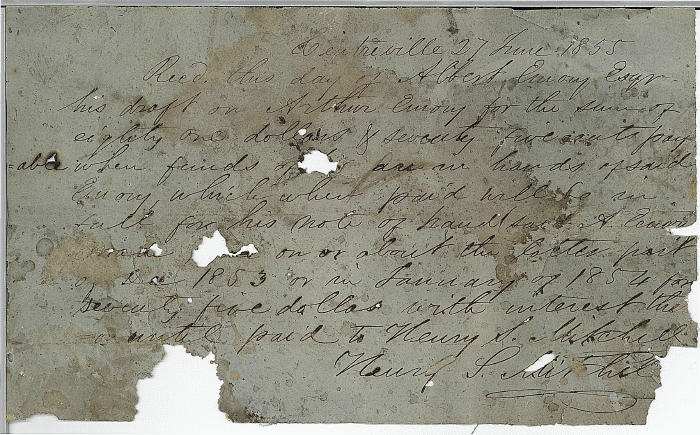 Centreville 27 June 1855
Recd. this day of Albert Emory Esqr
his draft on Arthur Emory for the sum of
eighty one dollars & seventy five cents pay
=able when funds of are in hands of said
Emory, which when paid will be in
full for his note of hand said A. Emory
on or about the latter part
Dec 1853 or in January of 1854 for
seventy five dollas with interest the
until paid to Henry S. Mitchell
Henry S. Mitchell